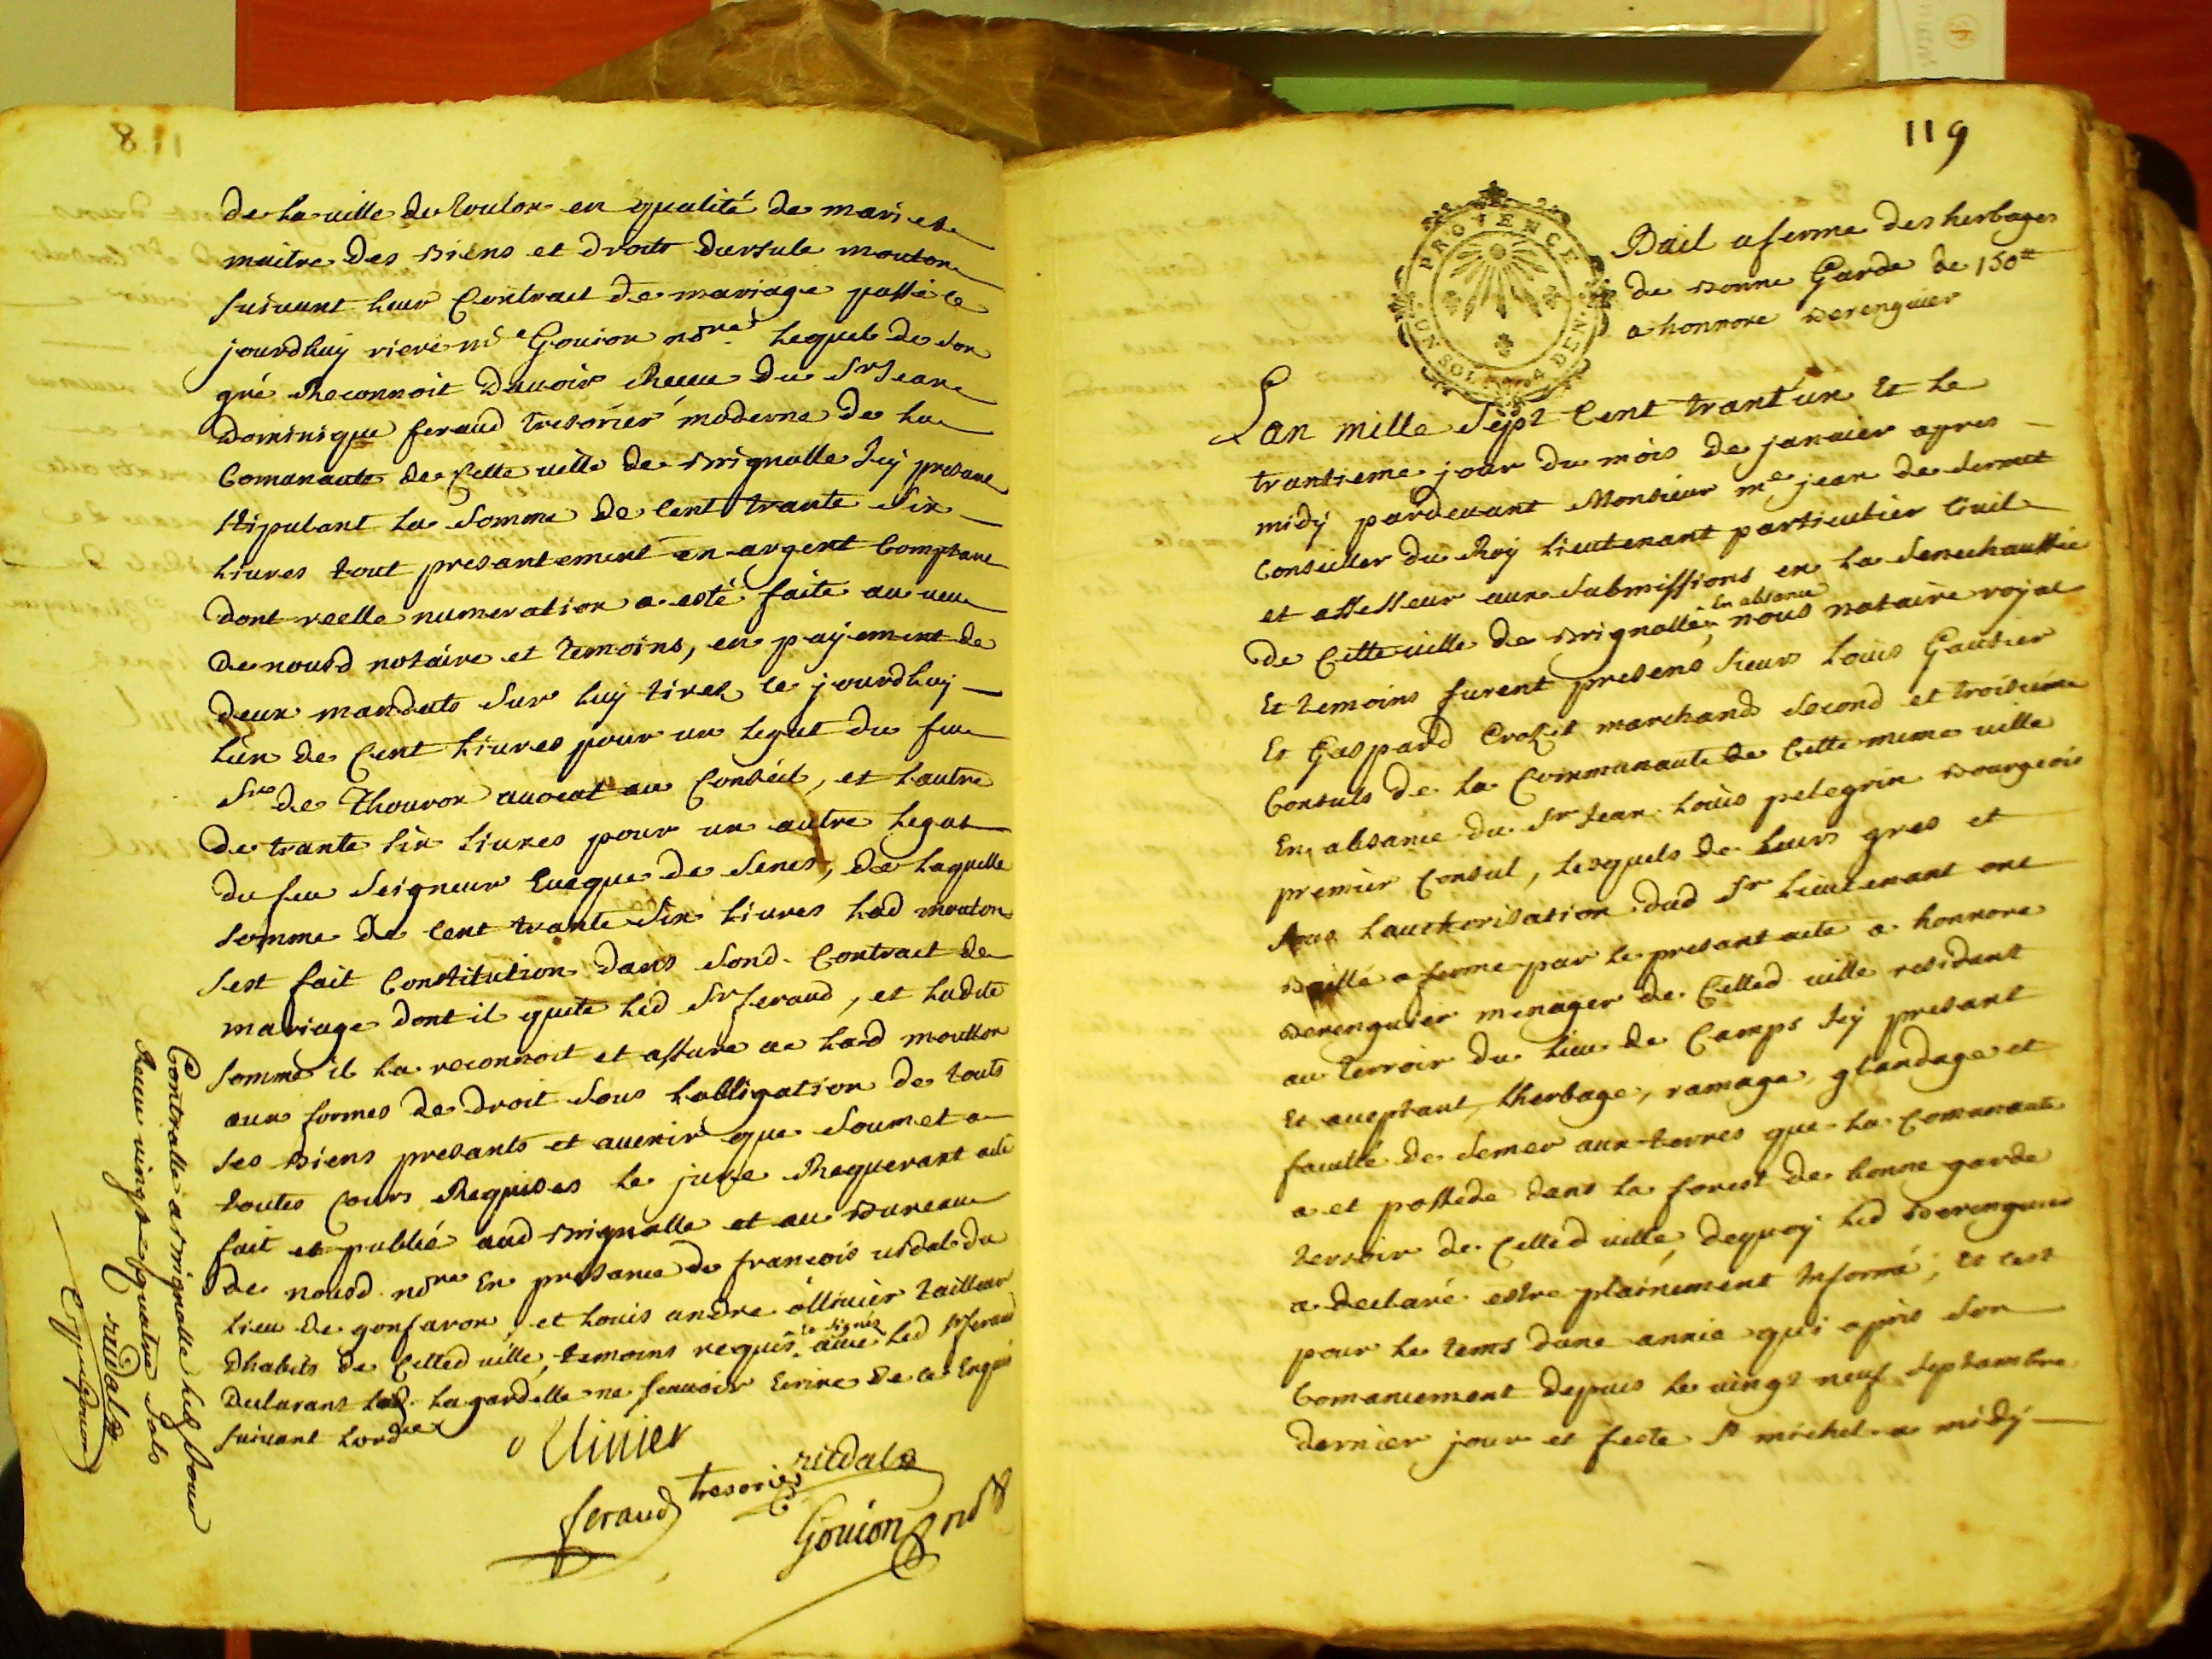 de la ville de Toulon en qualité de mari et
maitre des biens et droits dursule mouton
suivant leur Contract de mariage passé ce
jourdhuy riere me Gouion nore. Lequel de son
gré Reconnoit davoir Receu du Sr Jean
Dominique feraud Tresorier moderne de la
Comunaute de Cette ville de Brignolle Icy presant
stipulant la somme de Cent trante six
livres tout presantement en argent Comptant
dont reelle numeration a esté faite au veu
de nousd notaire et temoins, en payement de
deux mandats sur luy tirez ce jourdhuy
lun de Cent livres pour un legat du feu
Sr de Thouron avocat au Conseil, et lautre
de trante six livres pour un autre legat
du feu Seigneur Eveque de Senes, de laquelle
somme de Cent trante six livres lad mouton
sest fait Constitution dans sond. Contract de
mariage dont il quite led Sr feraud, et ladite
somme il la reconnoit et assure a lad moutton
aux formes de droit sous lobligation de touts
ses biens presants et avenir que soumet a
toutes Cours Requises le jure Requerant acte
fait et publié aud Brignolle et au Bureau
de nousd. nore En presance de françois vidal du
lieu de gonfaron, et louis andre ollivier tailleur
dhabits de Celled ville, temoins requis, avec led Sr feraud
le signés
declarant led. lagardelle ne scavoir Ecrire de ce Enquis
suivant lordce
Ollivier
vidal
feraud tresorier
Gouion nore
Controlle a Brignolle led jour
Receu vingt quatre sols
vidal
119
PROVENCE
UN SOL 4 DEN.
Bail a ferme des herbages
de Bonne Garde de 150tt
a honnore Berenguier
Lan mille Sept Cent trant'un Et le
trantieme jour du mois de janvier apres
midy pardevant Monsieur me jean de
Conseiller du Roy lieutenant particulier Civil
et assesseur aux submissions en la Senechaussée
de Cette ville de Brignolle, nous notaire royal
En absance
Et temoins furent presens sieur Louis Gautier
Et Gaspard Crozet marchands second et troisieme
Consuls de la Communaute de Cette meme ville
En absance du Sr Jean Louis pelegrin Bourgeois
premier Consul, lesquels de leurs gres et
sous lauthorisation dud Sr lieutenant ont
Baillé a ferme par le presant acte a honnore
Berenguier menager de Celled ville residant
au terroir du lieu de Camps Icy presant
Et aceptant, lherbage, ramage, glandage et
faculté de semer aux terres que la Comunaute
a et possede dans la forest de bonne garde
terroir de Celled ville, dequoy led Berenguier
a declaré estre plainement Informé, Et cest
pour le tems dune année qui a pris son
Comancement depuis le vingt neuf Septambre
dernier jour et feste St michel a midy